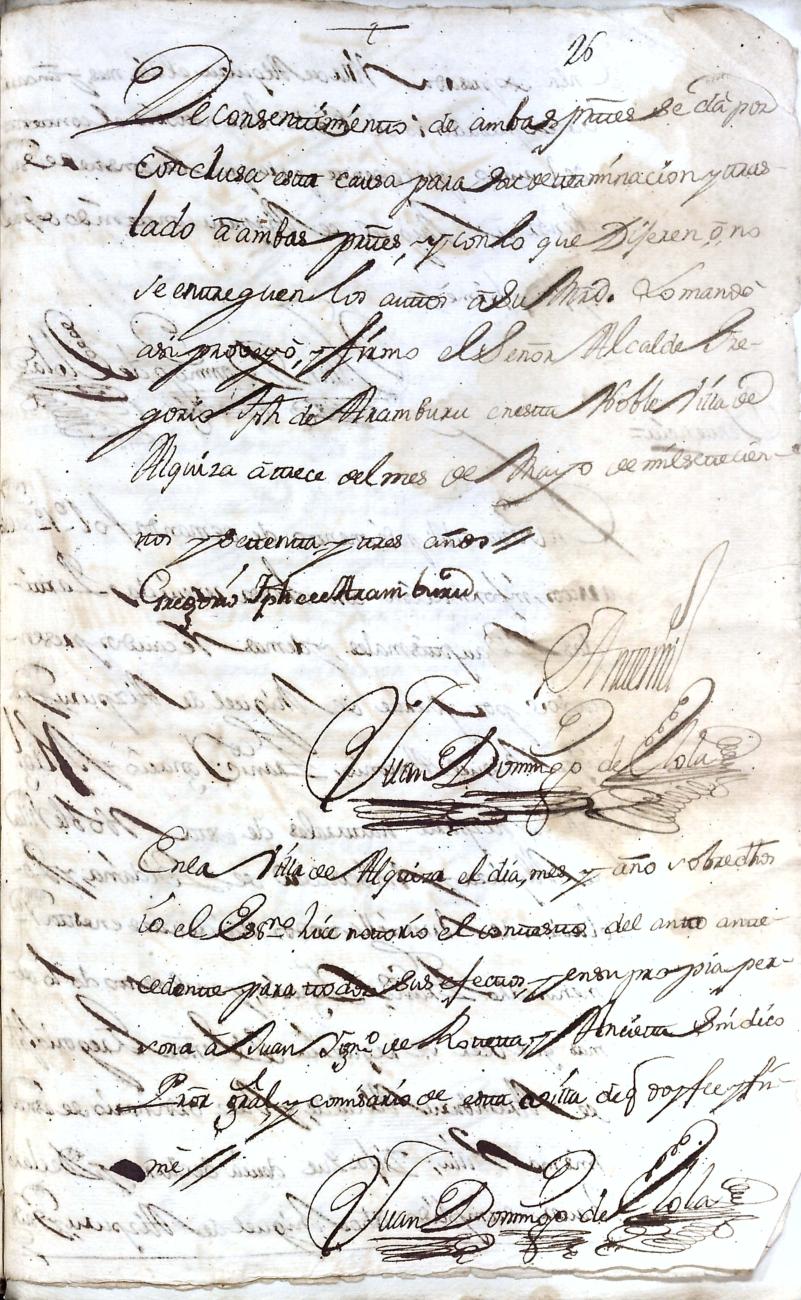 26
De consentimiento de ambas prttes se dà por
conclusa esta causa para su determinacion y tras-
lado â ambas prttes, y con lo que Dijeren, ô, no
se entreguen los autos â Su Mrd. Lo mandò
asi proveyò, y firmo el Señor Alcalde Gre-
gorio Jph de Aramburu en esta Noble Villa de
Alquiza â trece del mes de Mayo de mil setecien-
tos y setenta y tres años
Gregorio Jph de Aramburu
Antemi
Juan Domingo de Llola
En la Villa de Alquiza el dia, mes, y año sobredhos
Io el Essno hice notorio el contesto del auto ante-
cedente para todos sus efectos, y en su propia per-
sona â Juan Ygno de Roteta, y Ancieta Sindico
Pror gral y comisario de esta villa de q doy fee y fir-
mè
Juan Domingo de Llola